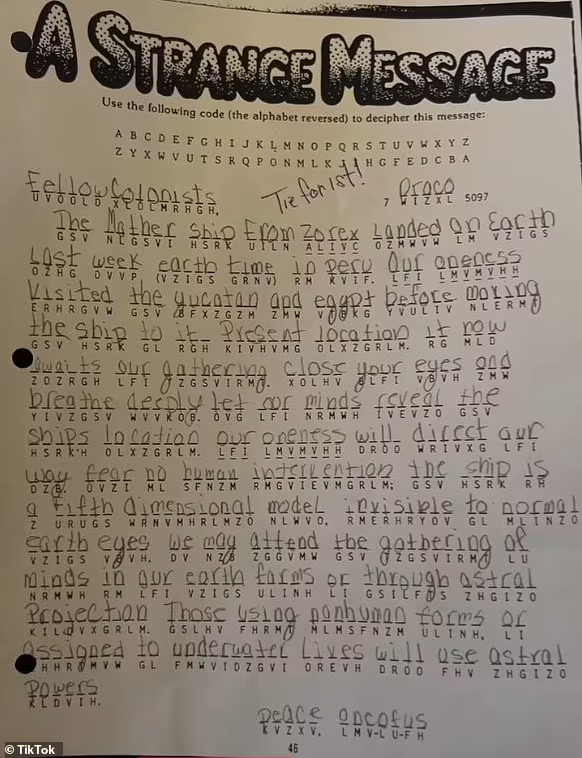 A STRANGE MESSAGE
Use the following code (the alphabet reversed) to decipher this message:
A B C D E F G H I J K L M N O P Q R S T U V W X Y Z
Z Y X W V U T S R Q P O N M L K J I H G F E D C B A
Tie for 1st!
Fellow Colonists Draco
UVOOLD XLOLMRHGH, 7 WIZXL 5097
The Mother ship From Zorex Landed on Earth
GSV NLGSVI HSRK UILN ALIVC OZMWVW LM VZIGS
Last week earth time in peru Our oneness
OZHG DVVP (VZIGS GRNV) RM KVIF. LFI LMVMVHH
Visited the yucatan and egypt before moving
ERHRGVW GSV BFXZGZM ZMW VTBKG YVULIV NLERMT
the ship to it Present location it now
GSV HSRK GL RGH KIVHVMG OLXZGRLM. RG MLD
awaits our gathering close your eyes and
ZDZRGH LFI TZGSVIRMT. XOLHV BLFI VBVH ZMW
breathe deeply let our minds reveal the
YIVZGSV WVVKOB. OVG LFI NRMWH IVEVZO GSV
ships location our oneness will direct our
HSRK'H OLXZGRLM. LFI LMVMVHH DROO WRIVXG LFI
way fear no human intervention the ship is
DZB. UVZI ML SFNZM RMGVIEVMGRLM; GSV HSRK RH
a fifth dimensional model invisible to normal
Z URUGS WRNVMHRLMZO NLWVO, RMERHRYOV GL MLINZO
earth eyes we may attend the gathering of
VZIGS VBVH. DV NZB ZGGVMW GSV TZGSVIRMT LU
minds in our earth forms or through astral
NRMWH RM LFI VZIGS ULINH LI GSILFTS ZHGIZO
Projection Those using nonhuman forms or
KILQVXGRLM. GSLHV FHRMT MLMSFNZM ULINH, LI
assigned to underwater Lives will use astral
HHRTMVW GL FMWVIDZGVI OREVH DROO FHV ZHGIZO
Powers
KLDVIH.
peace oneofus
KVZXV, LMV-LU-FH
46
© TikTok